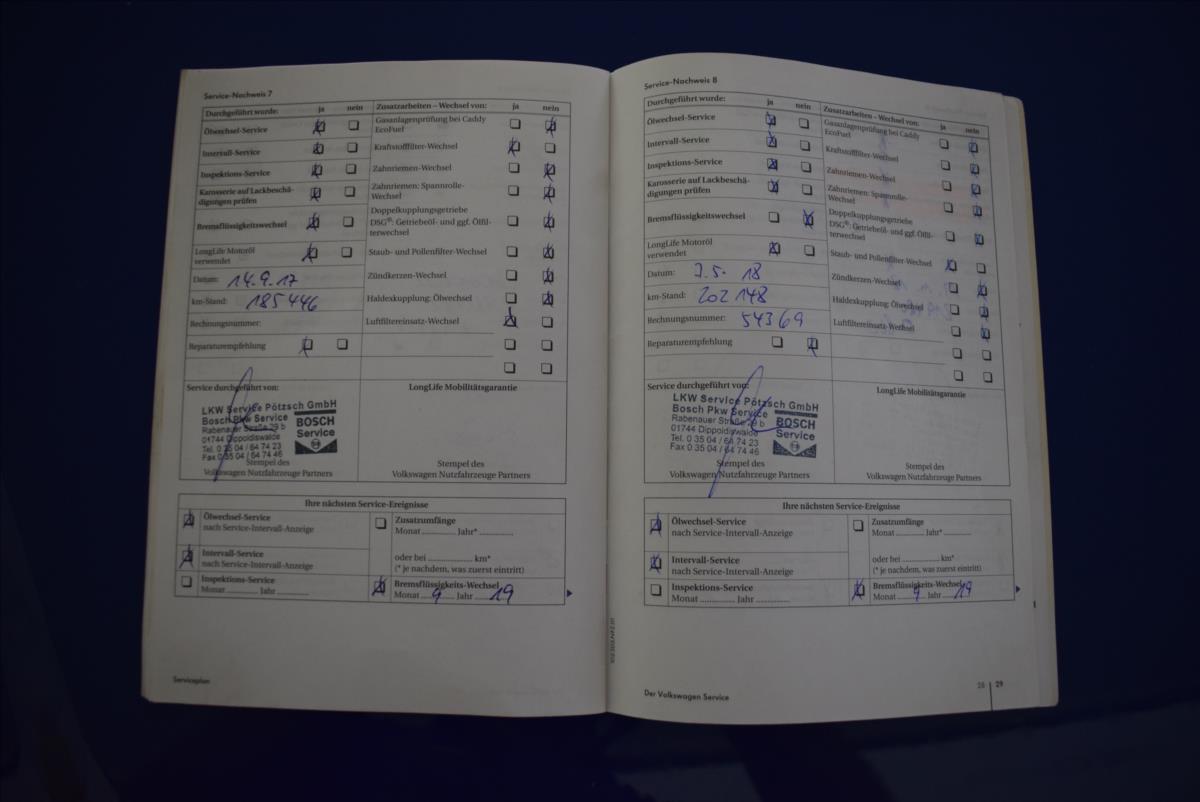 Service-Nachweis 7
Durchgeführt wurde: ja nein
Ölwechsel-Service
Intervall-Service
Inspektions-Service
Karosserie auf Lackbeschä-
digungen prüfen
Bremsflüssigkeitswechsel
LongLife Motoröl
verwendet
Datum: 14.9.17
km-Stand: 185446
Rechnungsnummer:
Reparaturempfehlung
Zusatzarbeiten – Wechsel von: ja nein
Gasanlagenprüfung bei Caddy
EcoFuel
Kraftstofffilter-Wechsel
Zahnriemen-Wechsel
Zahnriemen: Spannrolle-
Wechsel
Doppelkupplungsgetriebe
DSG®: Getriebeöl- und ggf. Ölfil-
terwechsel
Staub- und Pollenfilter-Wechsel
Zündkerzen-Wechsel
Haldexkupplung: Ölwechsel
Luftfiltereinsatz-Wechsel
Service durchgeführt von:
LKW Service Pötzsch GmbH
Bosch Pkw Service
Rabenauer Straße 29 b
01744 Dippoldiswalde
Tel. 0 35 04 / 64 74 23
Fax 0 35 04 / 64 74 46
BOSCH
Service
Stempel des
Volkswagen Nutzfahrzeuge Partners
LongLife Mobilitätsgarantie
Stempel des
Volkswagen Nutzfahrzeuge Partners
Ihre nächsten Service-Ereignisse
Ölwechsel-Service
nach Service-Intervall-Anzeige
Intervall-Service
nach Service-Intervall-Anzeige
Inspektions-Service
Monat ............ Jahr ............
Zusatzumfänge
Monat ............ Jahr* ............
oder bei ................ km*
(* je nachdem, was zuerst eintritt)
Bremsflüssigkeits-Wechsel
Monat 9 Jahr 19
Serviceplan
Service-Nachweis 8
Durchgeführt wurde: ja nein
Ölwechsel-Service
Intervall-Service
Inspektions-Service
Karosserie auf Lackbeschä-
digungen prüfen
Bremsflüssigkeitswechsel
LongLife Motoröl
verwendet
Datum: 7.5. 18
km-Stand: 202 148
Rechnungsnummer: 54369
Reparaturempfehlung
Zusatzarbeiten – Wechsel von: ja nein
Gasanlagenprüfung bei Caddy
EcoFuel
Kraftstofffilter-Wechsel
Zahnriemen-Wechsel
Zahnriemen: Spannrolle-
Wechsel
Doppelkupplungsgetriebe
DSG®: Getriebeöl- und ggf. Ölfil-
terwechsel
Staub- und Pollenfilter-Wechsel
Zündkerzen-Wechsel
Haldexkupplung: Ölwechsel
Luftfiltereinsatz-Wechsel
Service durchgeführt von:
LKW Service Pötzsch GmbH
Bosch Pkw Service
Rabenauer Straße 29 b
01744 Dippoldiswalde
Tel. 0 35 04 / 64 74 23
Fax 0 35 04 / 64 74 46
BOSCH
Service
Stempel des
Volkswagen Nutzfahrzeuge Partners
LongLife Mobilitätsgarantie
Stempel des
Volkswagen Nutzfahrzeuge Partners
Ihre nächsten Service-Ereignisse
Ölwechsel-Service
nach Service-Intervall-Anzeige
Intervall-Service
nach Service-Intervall-Anzeige
Inspektions-Service
Monat ............ Jahr ............
Zusatzumfänge
Monat ............ Jahr* ............
oder bei ................ km*
(* je nachdem, was zuerst eintritt)
Bremsflüssigkeits-Wechsel
Monat 9 Jahr 19
Der Volkswagen Service
28 | 29